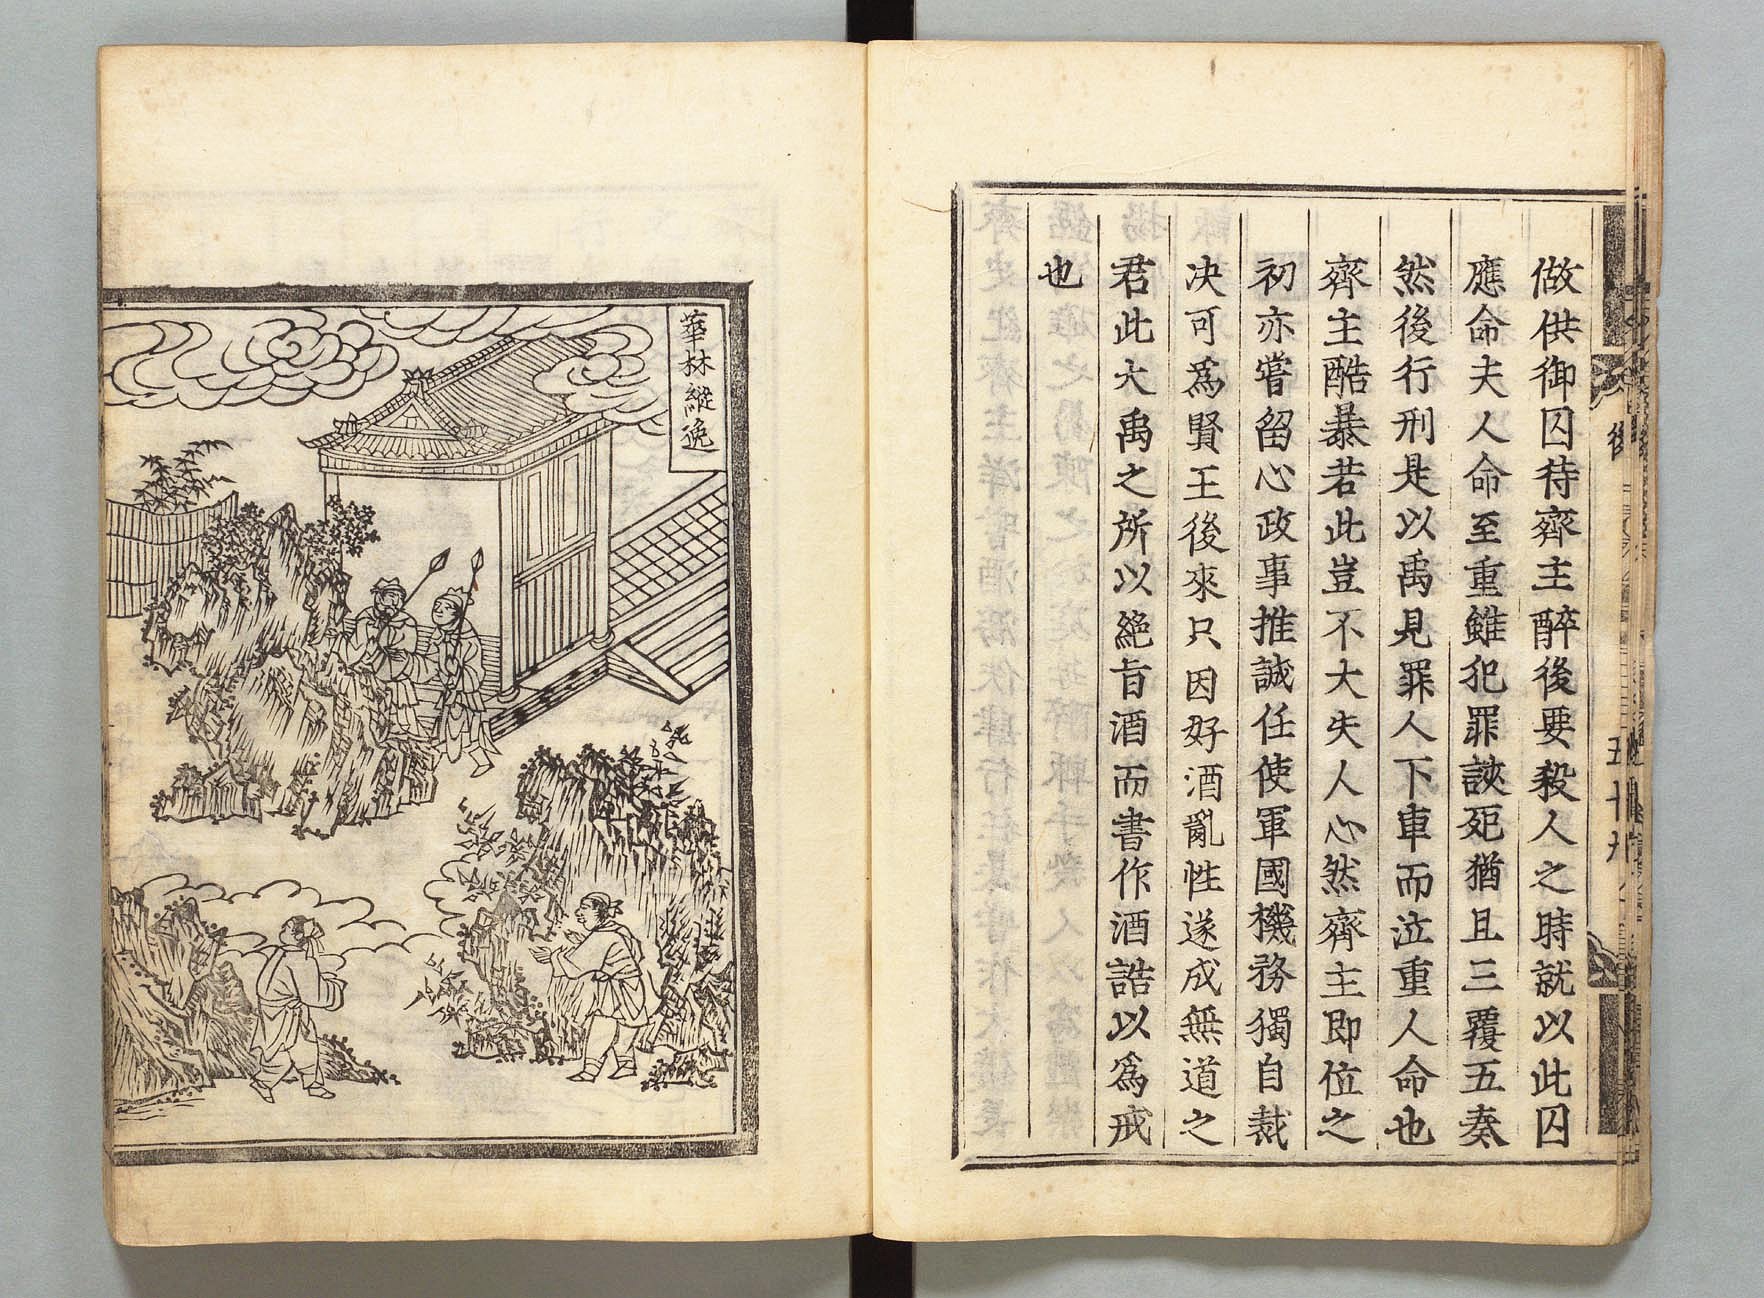 做供御囚待齊主醉後要殺人之時就以此囚
應命夫人命至重雖犯罪該死猶且三覆五奏
然後行刑是以禹見罪人下車而泣重人命也
齊主酷暴若此豈不大失人心然齊主即位之
初亦嘗留心政事推誠任使軍國機務獨自裁
決可爲賢王後來只因好酒亂性遂成無道之
君此大禹之所以絶旨酒而書作酒誥以爲戒
也
華林縱逸